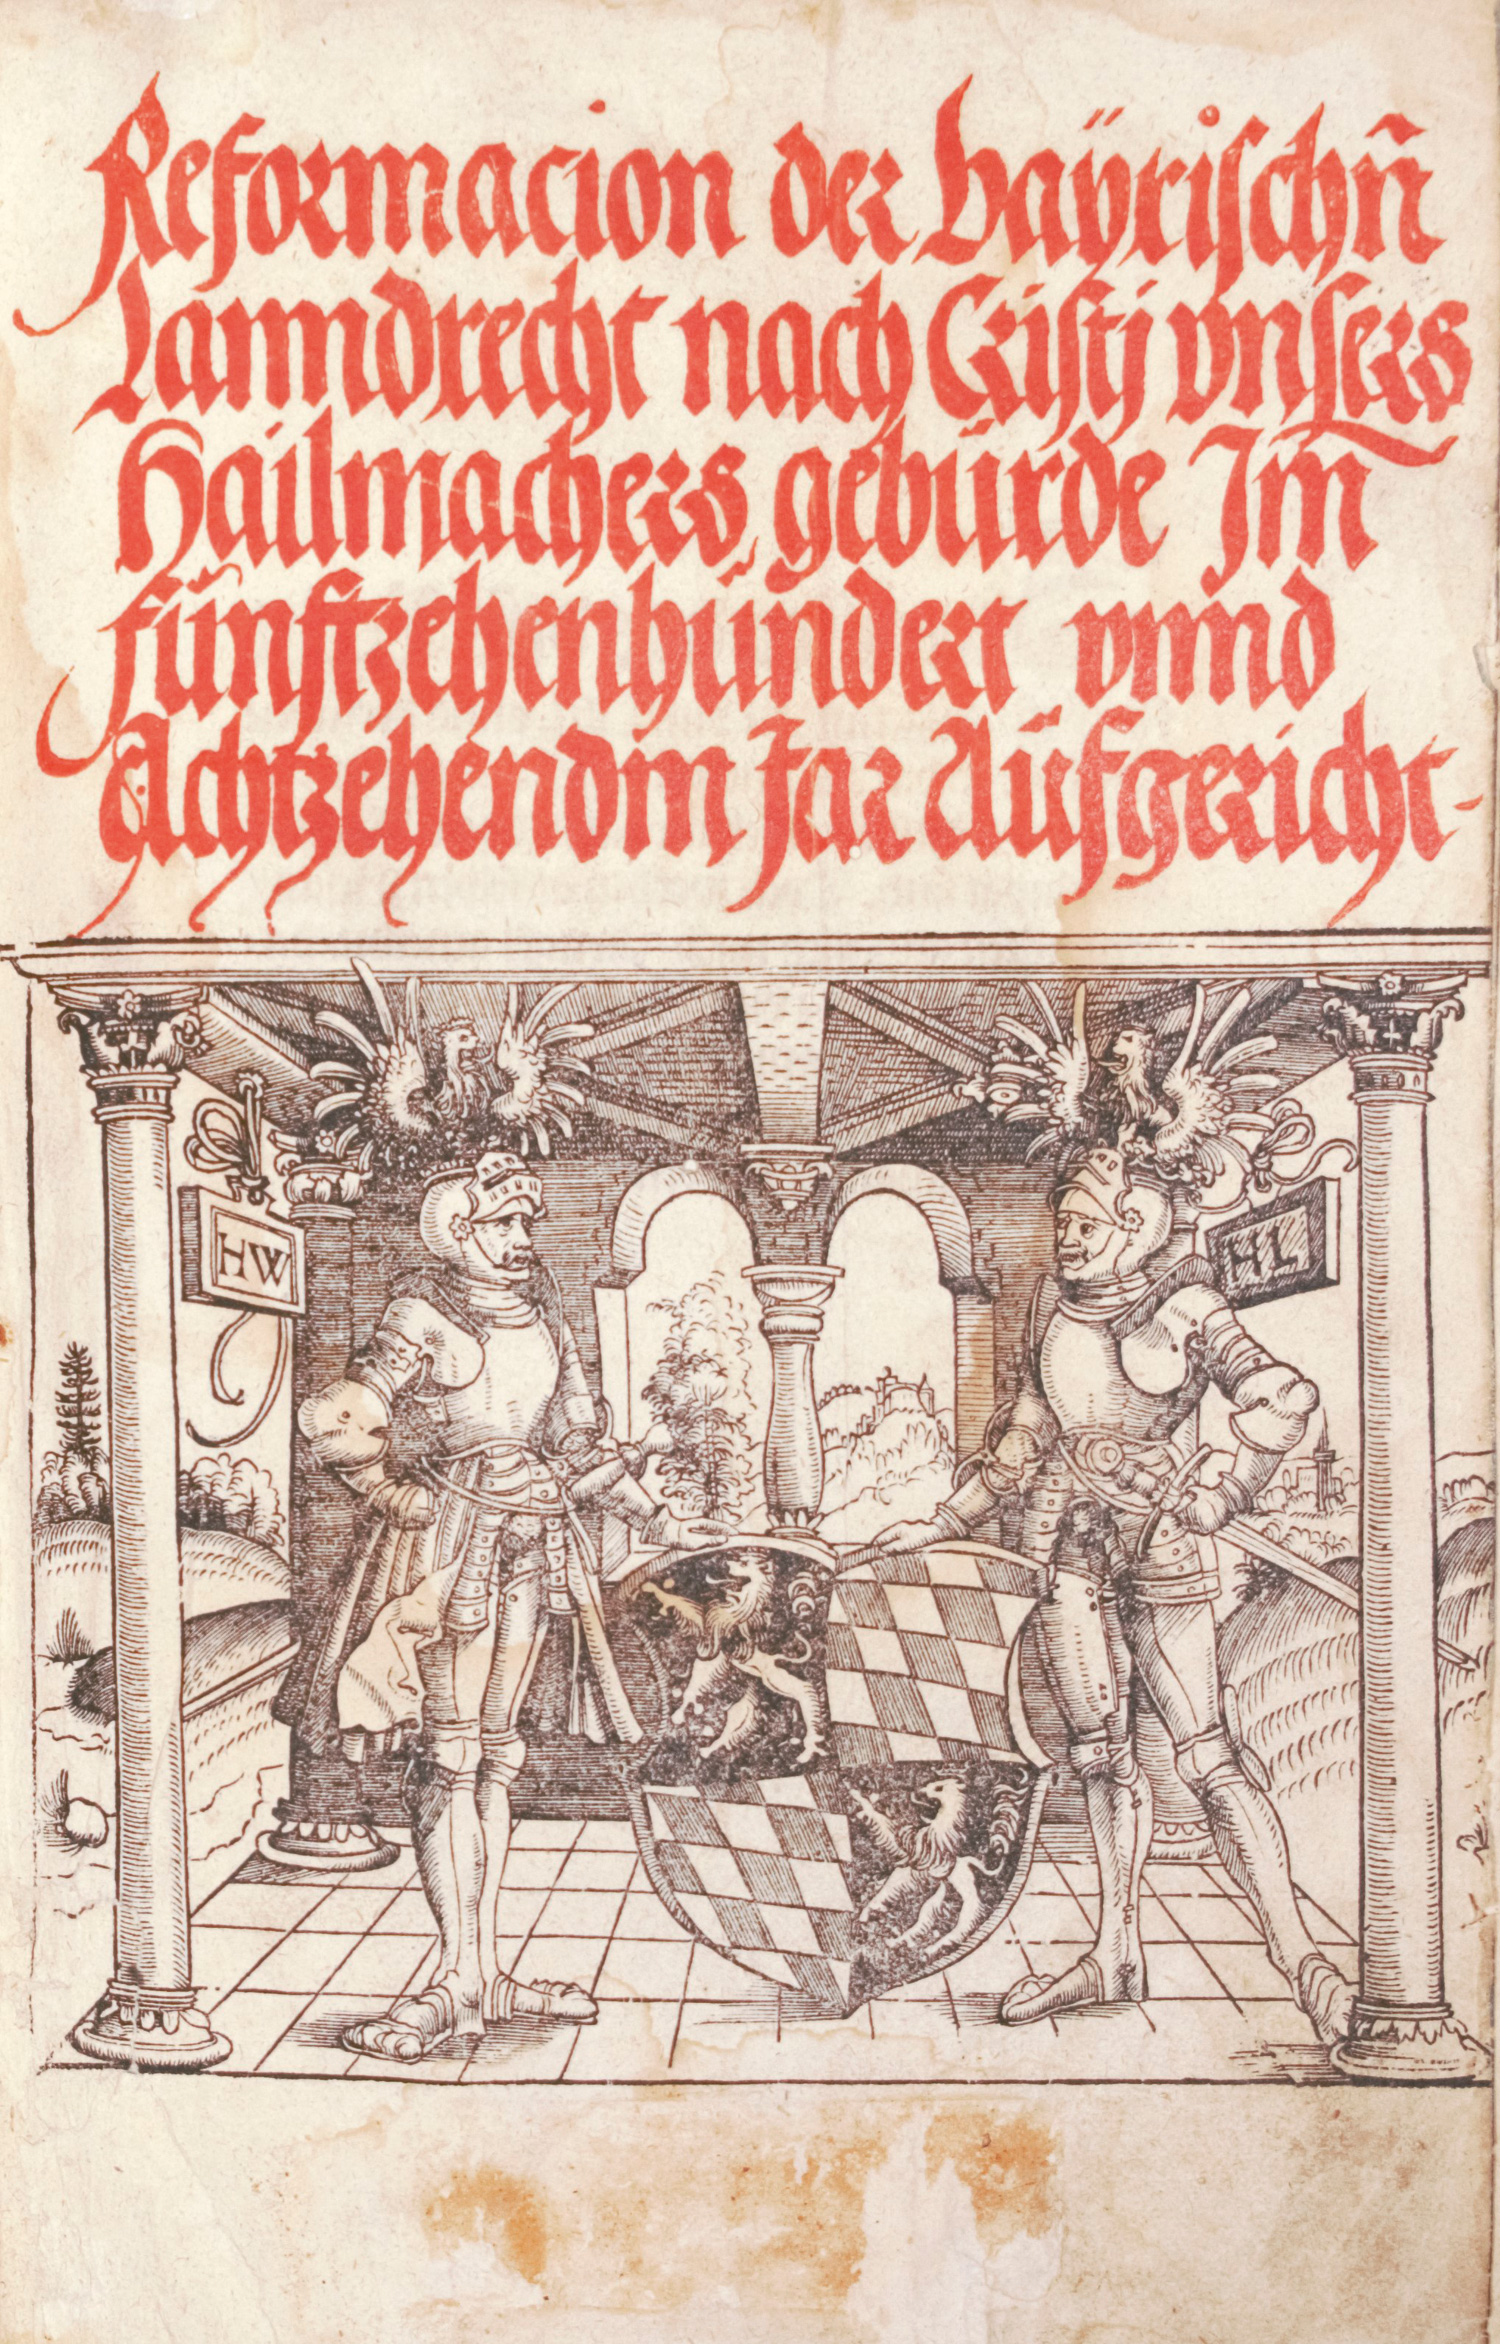 Reformacion der bayrischñ
Lanndrecht nach Cristi vnsers
Hailmachers gebürde Im
fünftzehenhundert vnnd
Achtzehendm Jar Aufgericht-
HW
HL